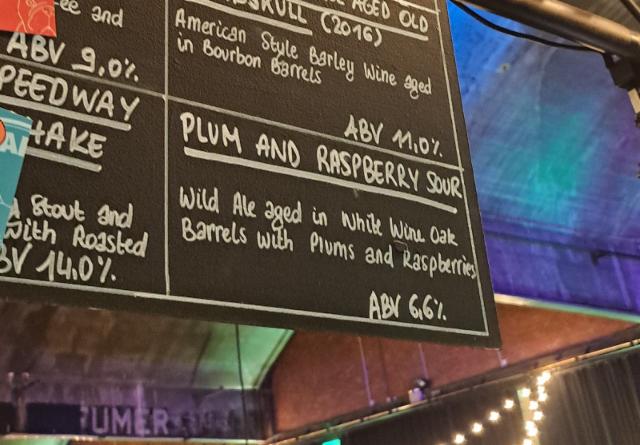 ee and
ABV 9,0%
PEEDWAY
HAKE
Stout and
with Roasted
BV 14,0%
AGED OLD
SKULL (2016)
American Style Barley Wine aged
in Bourbon Barrels
ABV 11,0%
PLUM AND RASPBERRY SOUR
Wild Ale aged in White Wine Oak
Barrels with Plums and Raspberries
ABV 6,6%
UMER